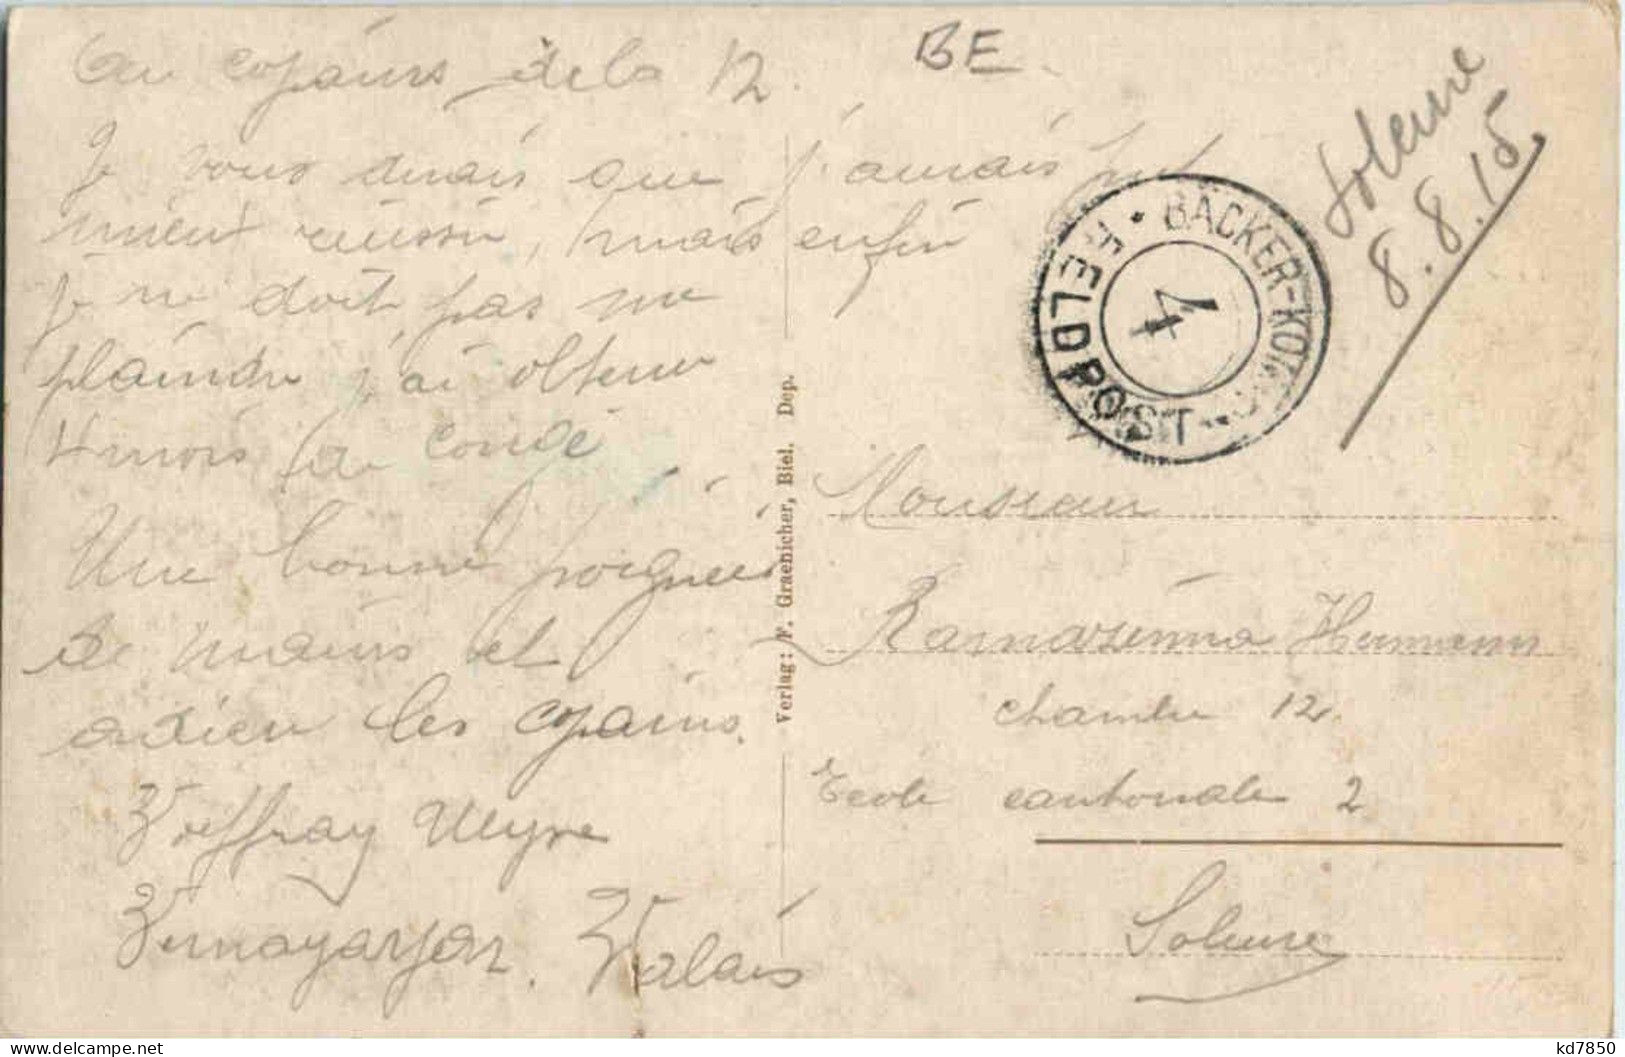 BE
Au copains de la 12.
Je vous dirais que j'aurais put
mieux réussir, mais enfin
je ne doit pas me
plaindre j'ai obtenu
4 mois de congé
Une bonne poignées
de mains et
adieu les copains.
Voeffray Ulysse
Vernayaz. Valais
Verlag: F. Graenicher, Biel. Dep.
Soleure
8.8.15
BÄCKER-KOMP.
4
FELDPOST
Monsieur
Ramazzina Hermann
chambre 12.
Ecole cantonale 2
Soleure
kd7850